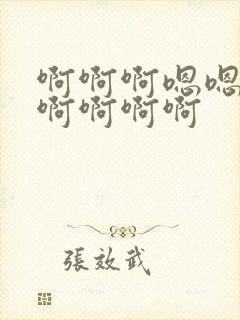 啊啊啊嗯嗯
啊啊啊啊
張效武